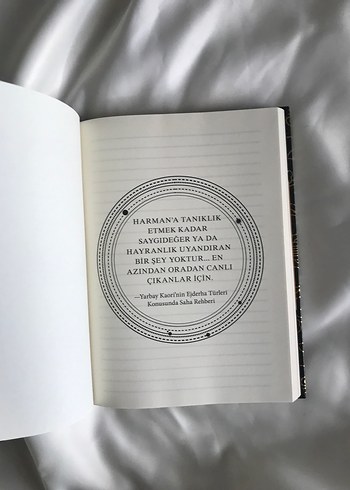 HARMAN'A TANIKLIK
ETMEK KADAR
SAYGIDEĞER YA DA
HAYRANLIK UYANDIRAN
BİR ŞEY YOKTUR... EN
AZINDAN ORADAN CANLI
ÇIKANLAR İÇİN.
—Yarbay Kaori'nin Ejderha Türleri
Konusunda Saha Rehberi